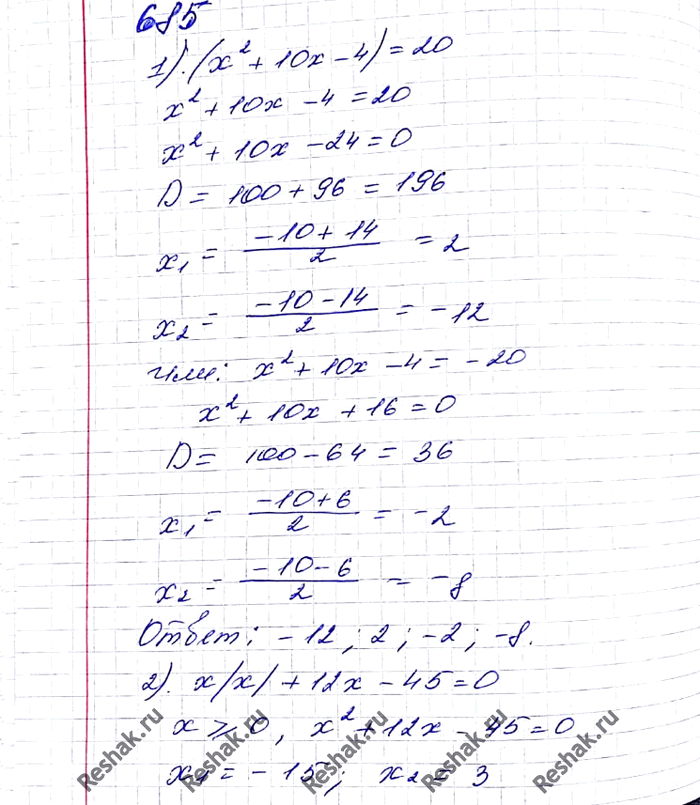 685
1). (x² + 10x - 4) = 20
x² + 10x - 4 = 20
x² + 10x - 24 = 0
D = 100 + 96 = 196
x₁ = (-10 + 14)/2 = 2
x₂ = (-10 - 14)/2 = -12
или: x² + 10x - 4 = -20
x² + 10x + 16 = 0
D = 100 - 64 = 36
x₁ = (-10 + 6)/2 = -2
x₂ = (-10 - 6)/2 = -8
Ответ: -12; 2; -2; -8.
2). x/x/ + 12x - 45 = 0
x ≥ 0, x² + 12x - 45 = 0
x₁ = -15; x₂ = 3
Reshak.ru Reshak.ru Reshak.ru Reshak.ru